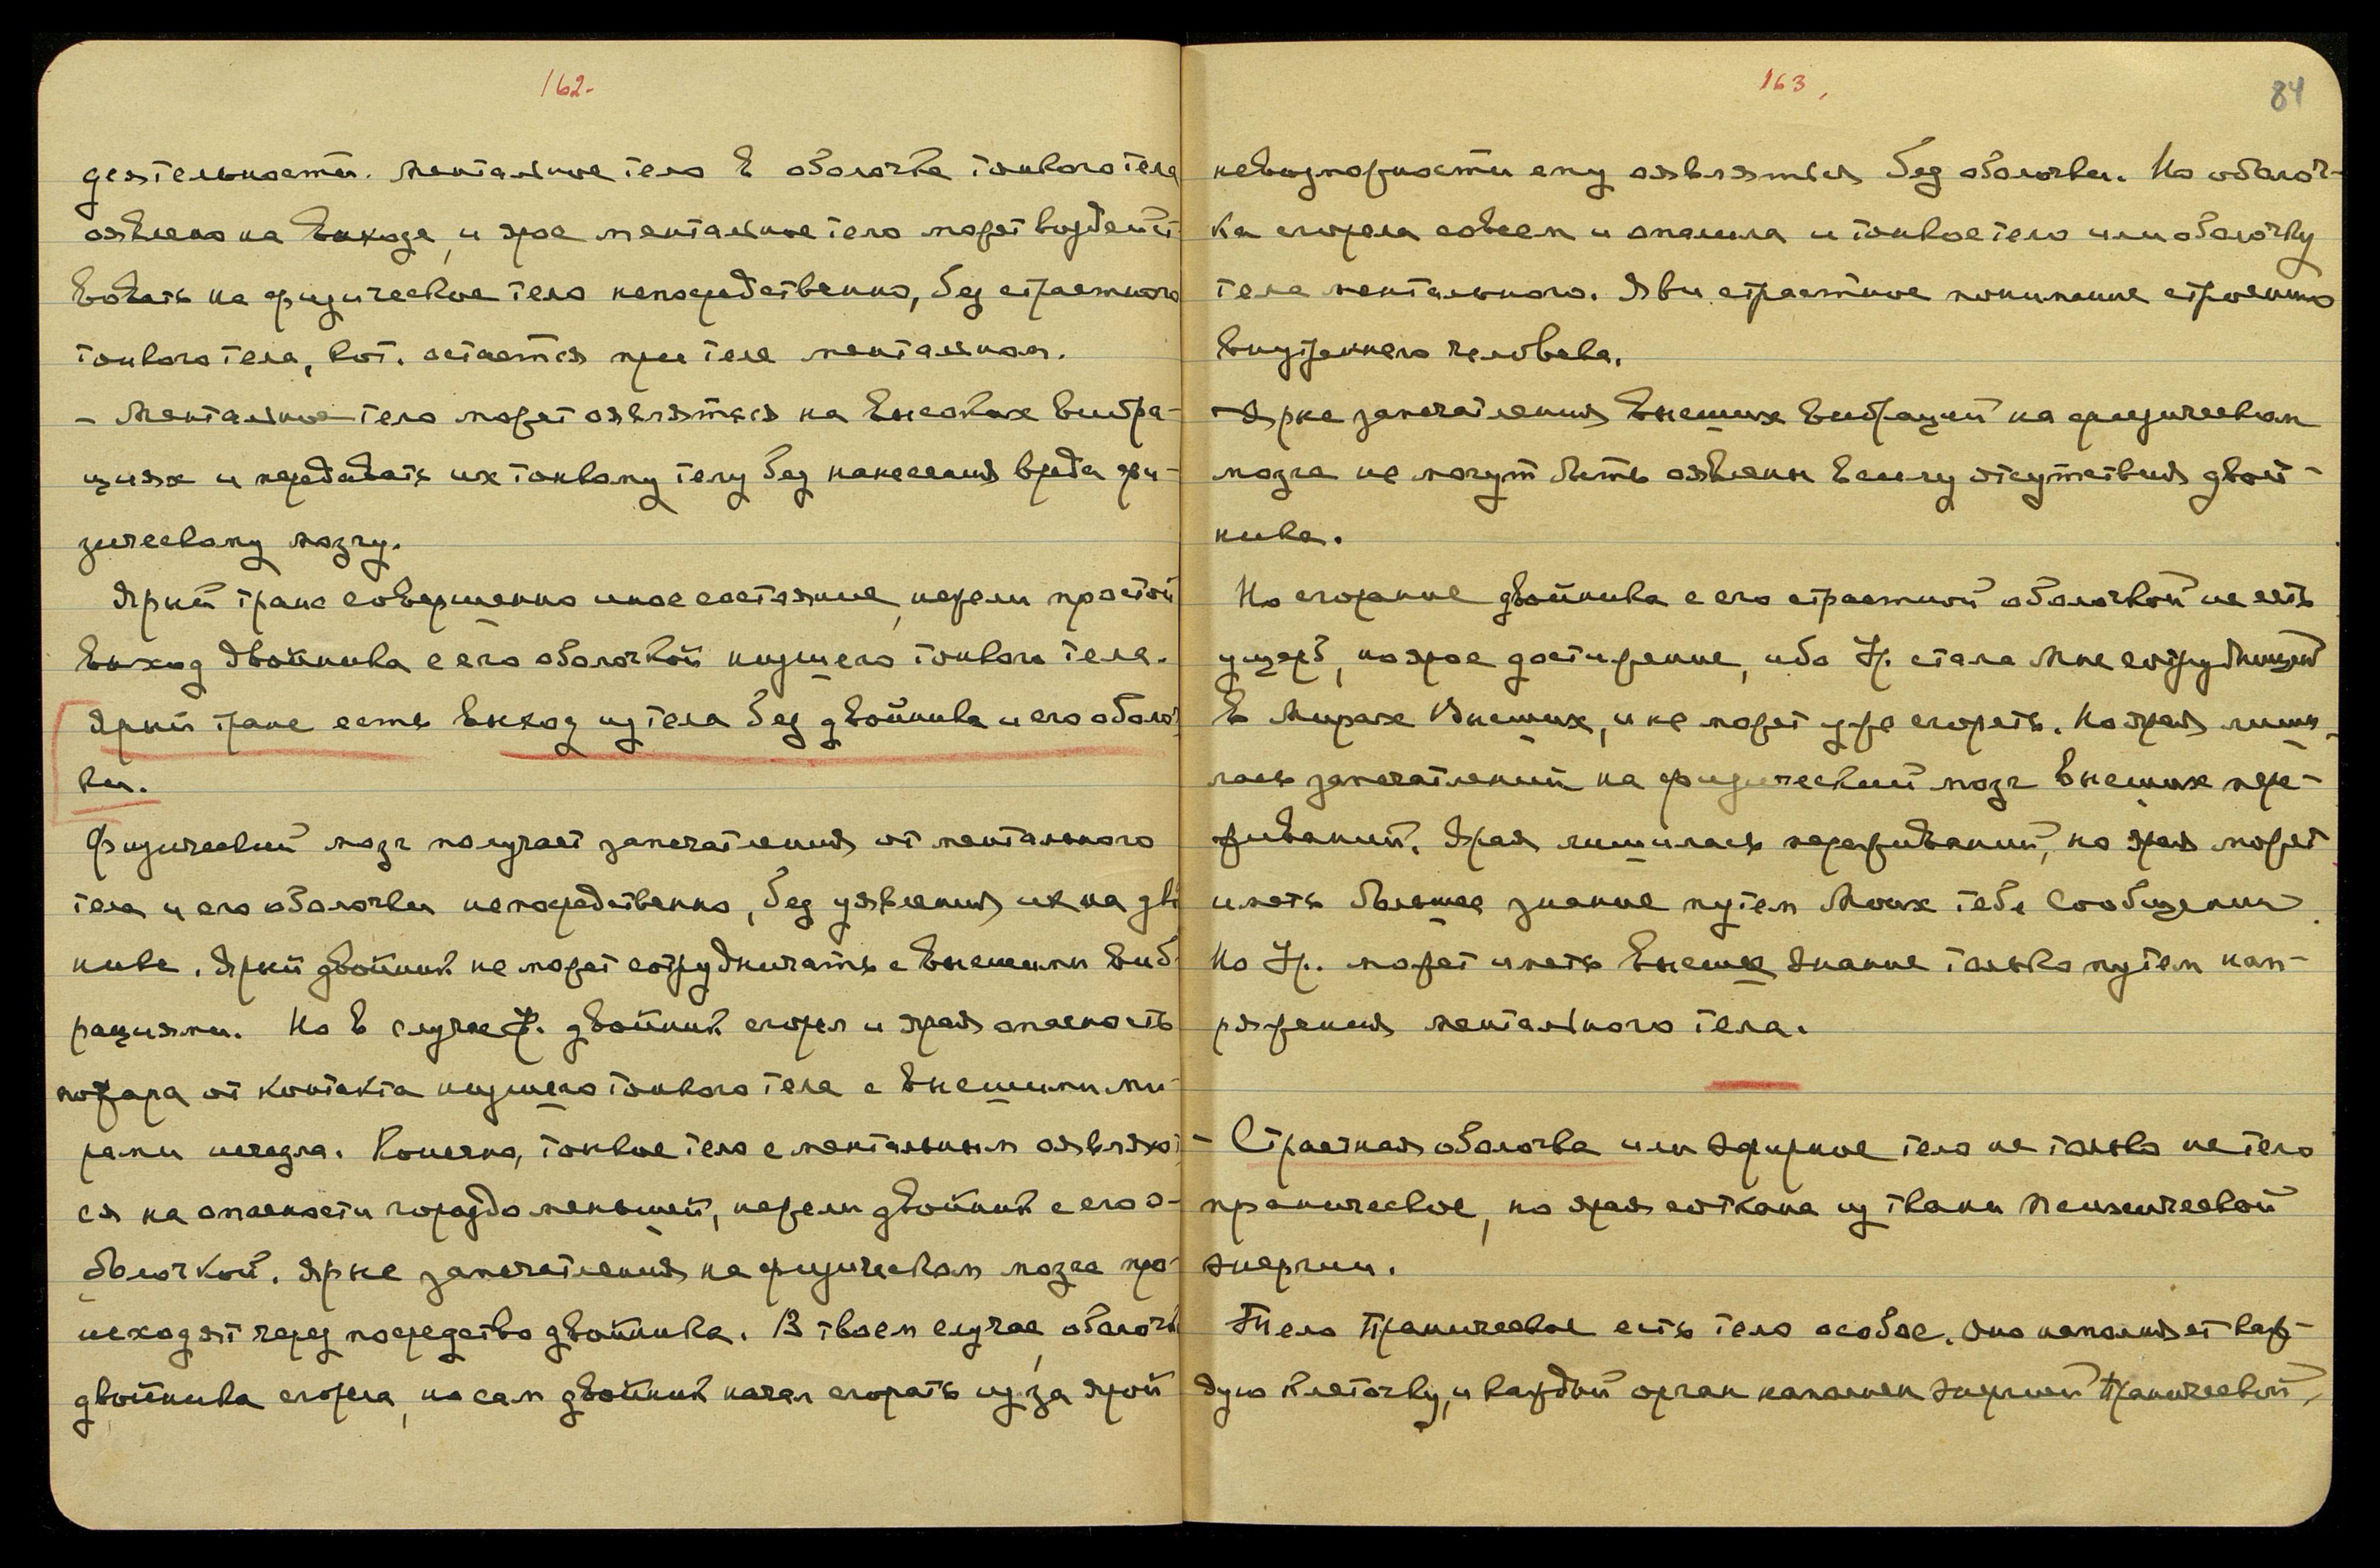 162.
деятельности. Ментальное тело в оболочке тонкого тела
оявлено на выходе, и ярое ментальное тело может воздейст
вовать на физическое тело непосредственно, без страстного
тонкого тела, кот. остается при теле ментальном.
- Ментальное тело может оявляться на высоких вибра-
циях и передавать их тонкому телу без нанесения вреда фи-
зическому мозгу.
Ярый транс совершенно иное состояние, нежели простой
выход двойника с его оболочкой низшего тонкого тела.
Ярый транс есть выход из тела без двойника и его оболоч
ки.
Физический мозг получает запечатления от ментального
тела и его оболочки непосредственно, без уявления их на дво
нике. Ярый двойник не может сотрудничать с высшими виб-
рациями. Но в случае У. двойник сгорел и ярая опасность
пожара от контакта низшего тонкого тела с высшими ми-
рами исчезла. Конечно, тонкое тело с ментальным оявляют
ся на опасности гораздо меньшей, нежели двойник с его о-
болочкой. Ярые запечатления на физическом мозге про-
исходят через посредство двойника. В твоем случае, оболочк
двойника сгорела, но сам двойник начал сгорать из за ярой
163,
84
невозможности ему оявляться без оболочки. Но оболоч-
ка сгорела совсем и опалила и тонкое тело или оболочку
тела ментального. Яви страстное понимание строению
внутреннего человека.
- Ярые запечатления высших вибраций на физическом
мозге не могут быть оявлены в силу отсутствия двой-
ника.
Но сгорание двойника с его страстной оболочкой не есть
ущерб, но ярое достижение, ибо У. стала Мне сотрудницей
в Мирах Высших, и не может уже сгореть. Но ярая лиши-
лась запечатлений на физический мозг высших пере-
живаний. Ярая лишилась переживаний, но ярая может
иметь большее знание путем Моих тебе Сообщений.
Но У. может иметь высшее знание только путем нап-
ряжения ментального тела.
- Страстная оболочка или эфирное тело не только не тело
праническое, но ярая соткана из ткани психической
энергии.
Тело Праническое есть тело особое. Оно наполняет каж-
дую клеточку, и каждый орган наполнен энергией Пранической,